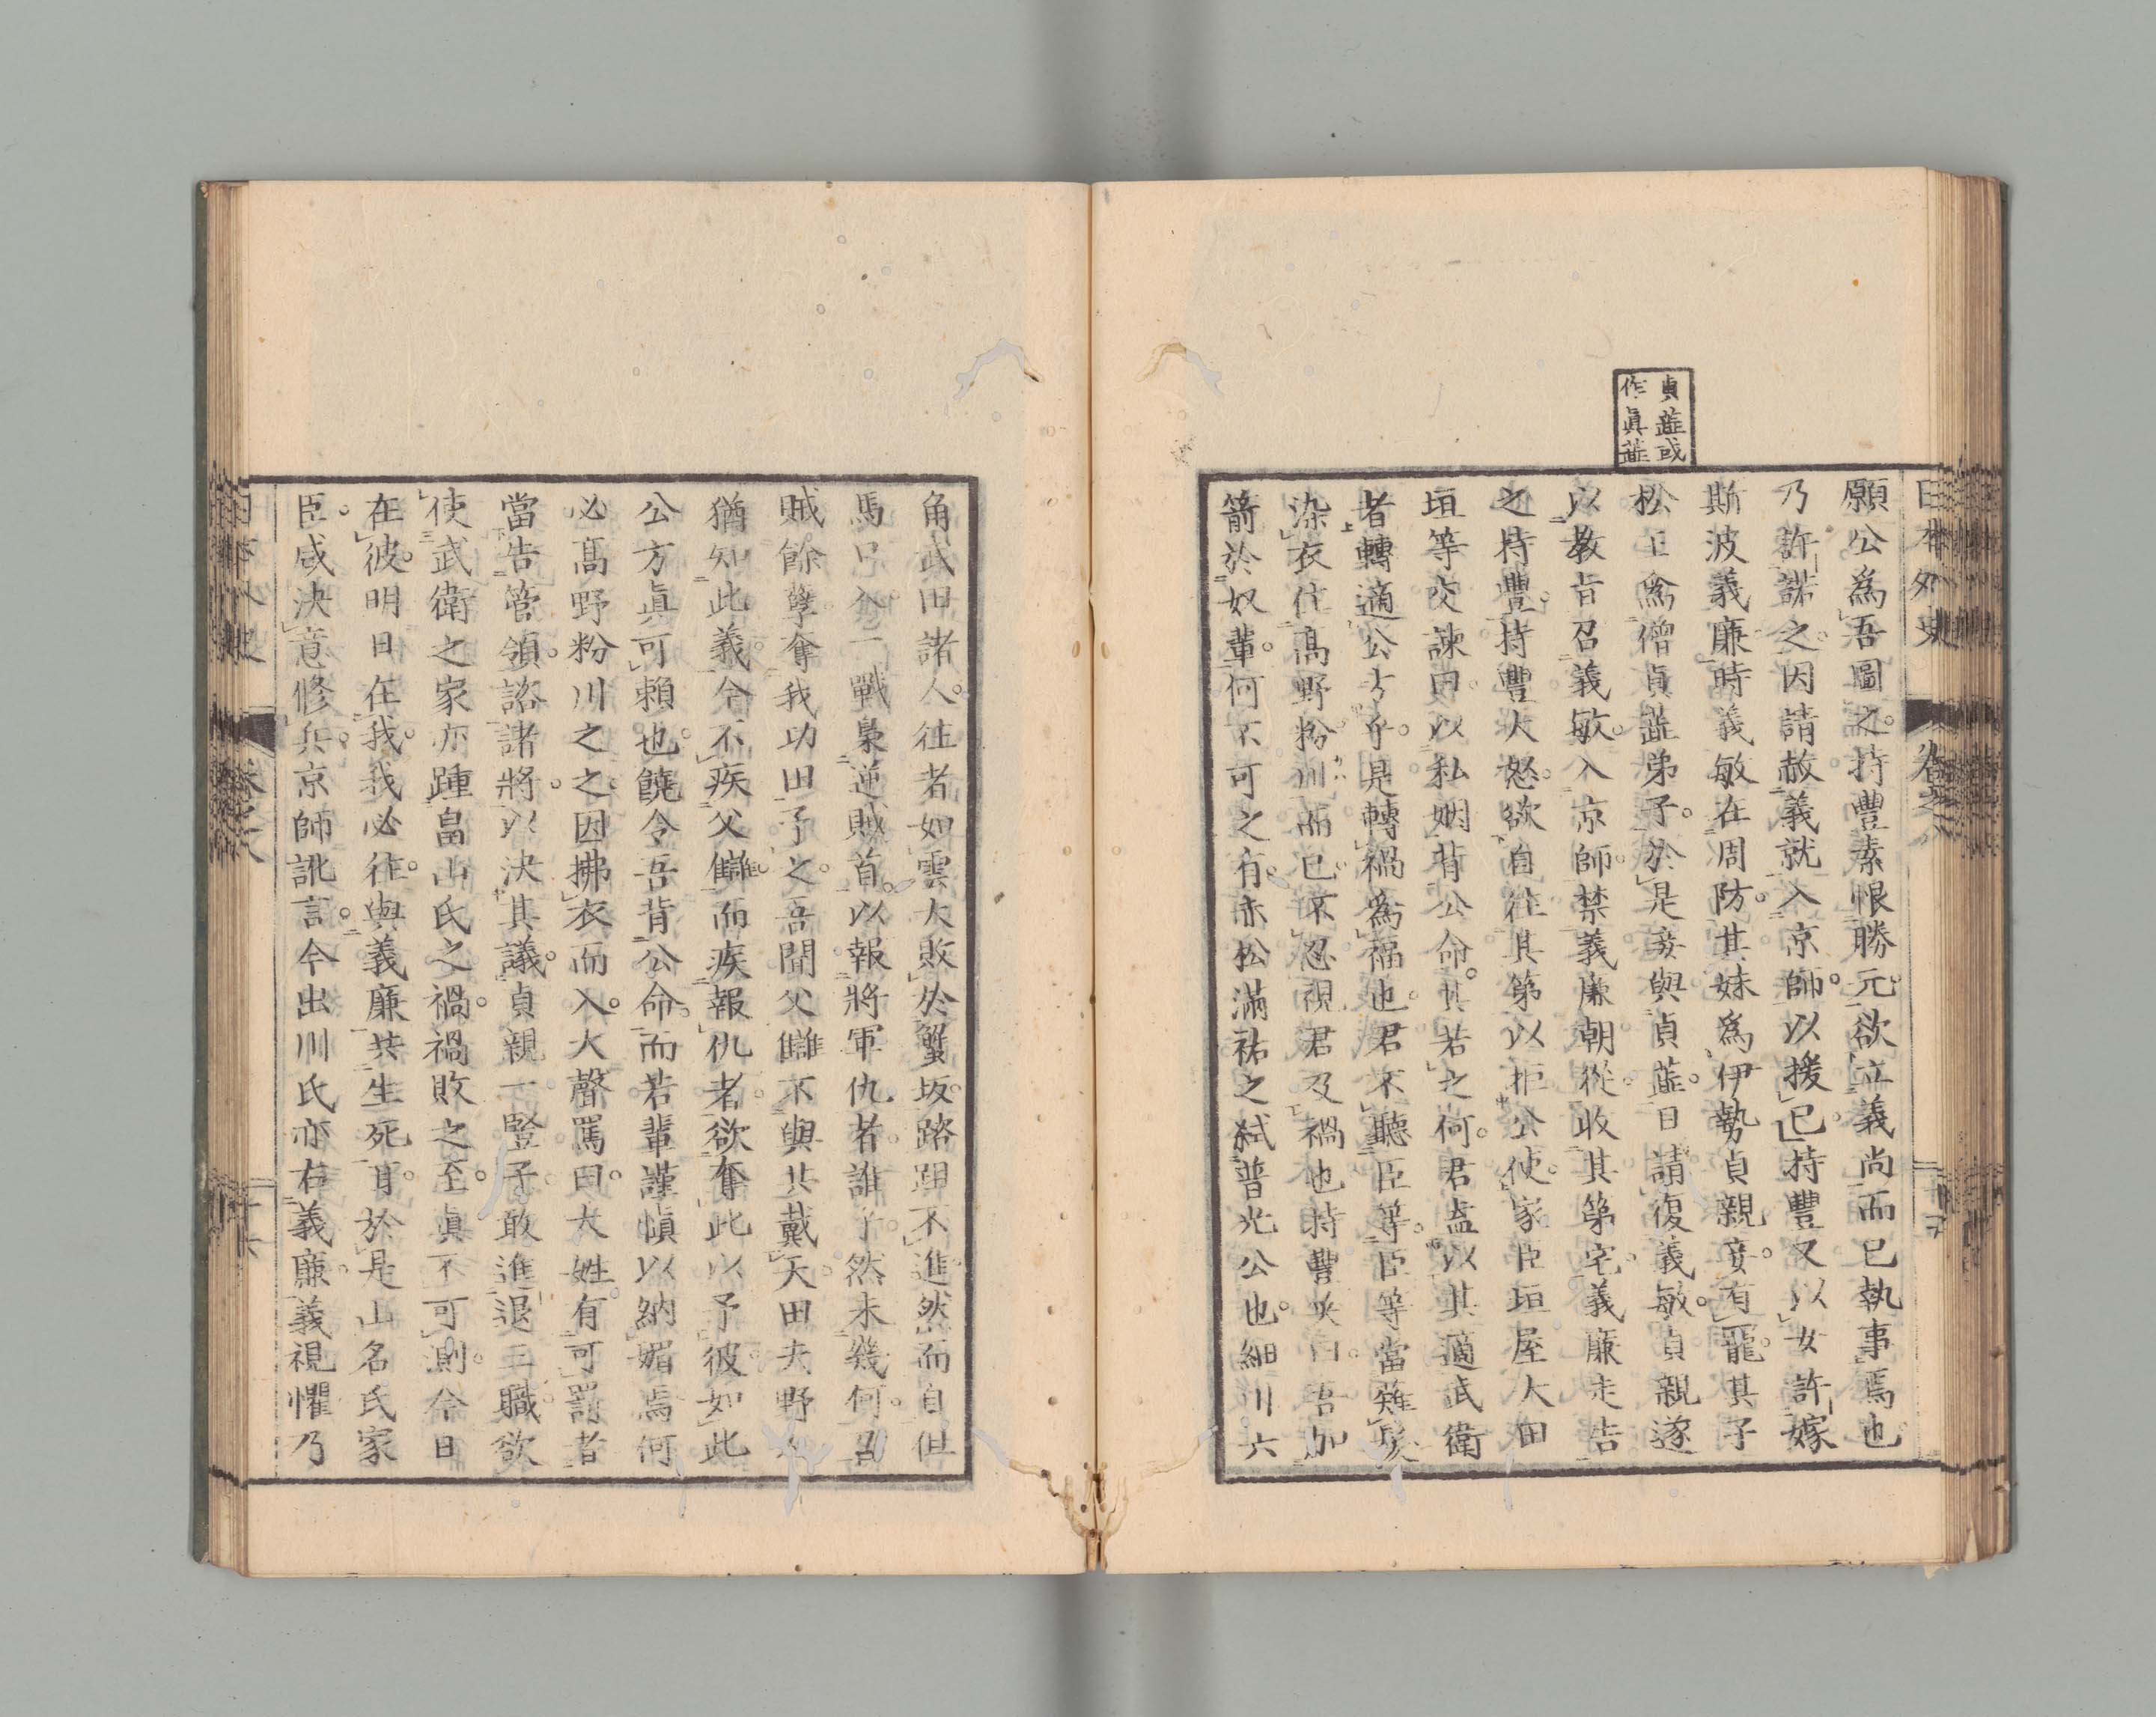 貞蘂或
作眞蘂
願公爲吾圖之持豐素恨勝元欲立義尚而已執事焉也
乃許諾之因請赦義就入京師以援已持豐又以女許嫁
斯波義廉時義敏在周防其妹爲伊勢貞親妾有寵其子
松王爲僧貞蘂弟子於是妾與貞蘂日請復義敏貞親遂
以教旨召義敏入京師禁義廉朝從收其第宅義廉走告
之持豐持豐大怒欲自往其第以拒公使家臣垣屋大田
垣等交諫曰以私姻背公命其若之何君盍以其適武衛
者轉適公方乎是轉禍爲福也君不聽臣等臣等當薙髮
染衣住高野粉川而已不忍視君及禍也持豐笑曰吾加
箭於奴輩何不可之有赤松滿祐之弑普光公也細川六
角武田諸人往者如雲大敗於蟹坂路阻不進然而自但
馬弓今一戰梟逆賊首以報將軍仇者誰乎然未幾何召
賊餘孽奪我功田予之吾聞父讎不與其戴天田夫野
猶知此義今不疾父讎而疾報仇者欲奪此以予彼如此
公方眞可賴也饒令吾背公命而若輩謹愼以納媚焉何
必高野粉川之之因拂衣而入大聲罵曰大姓有可罰者
當告管領諮諸將以決其議貞親一豎子敢進退三職欲
使武衛之家亦踵畠山氏之禍禍敗之至眞不可測今日
在彼明日在我我必往與義廉共生死耳於是山名氏家
臣咸決意修兵京師訛言今出川氏亦右義廉義視懼乃